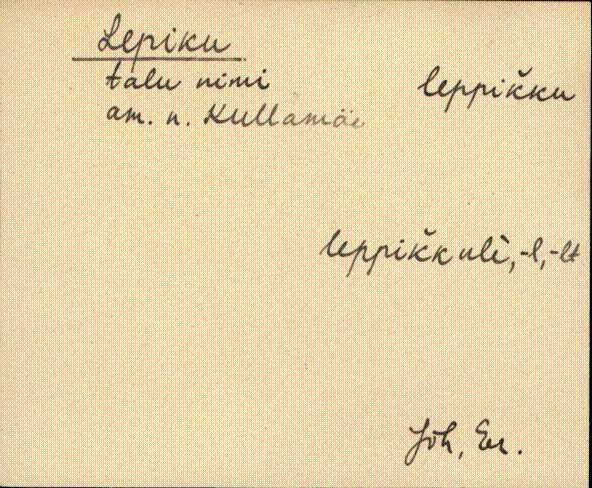 Lepiku
talu nimi leppikku
am. n. Kullamäe
leppikkulè, -l, -lt
Jõh, Er.